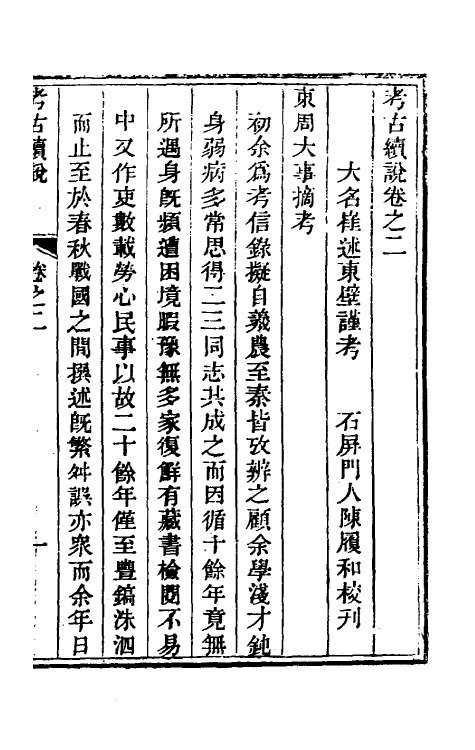 考古續說卷之二
大名崔述東壁謹考　石屏門人陳履和校刋
東周大事摘考
初余爲考信錄擬自羲農至秦皆攷辨之顧余學淺才鈍
身弱病多常思得二三同志共成之而因循十餘年竟無
所遇身旣頻遭困境暇豫無多家復鮮有藏書檢閱不易
中又作吏數載勞心民事以故二十餘年僅至豐鎬洙泗
而止至於春秋戰國之間撰述旣繁舛誤亦衆而余年日
考古續說　卷之二　一